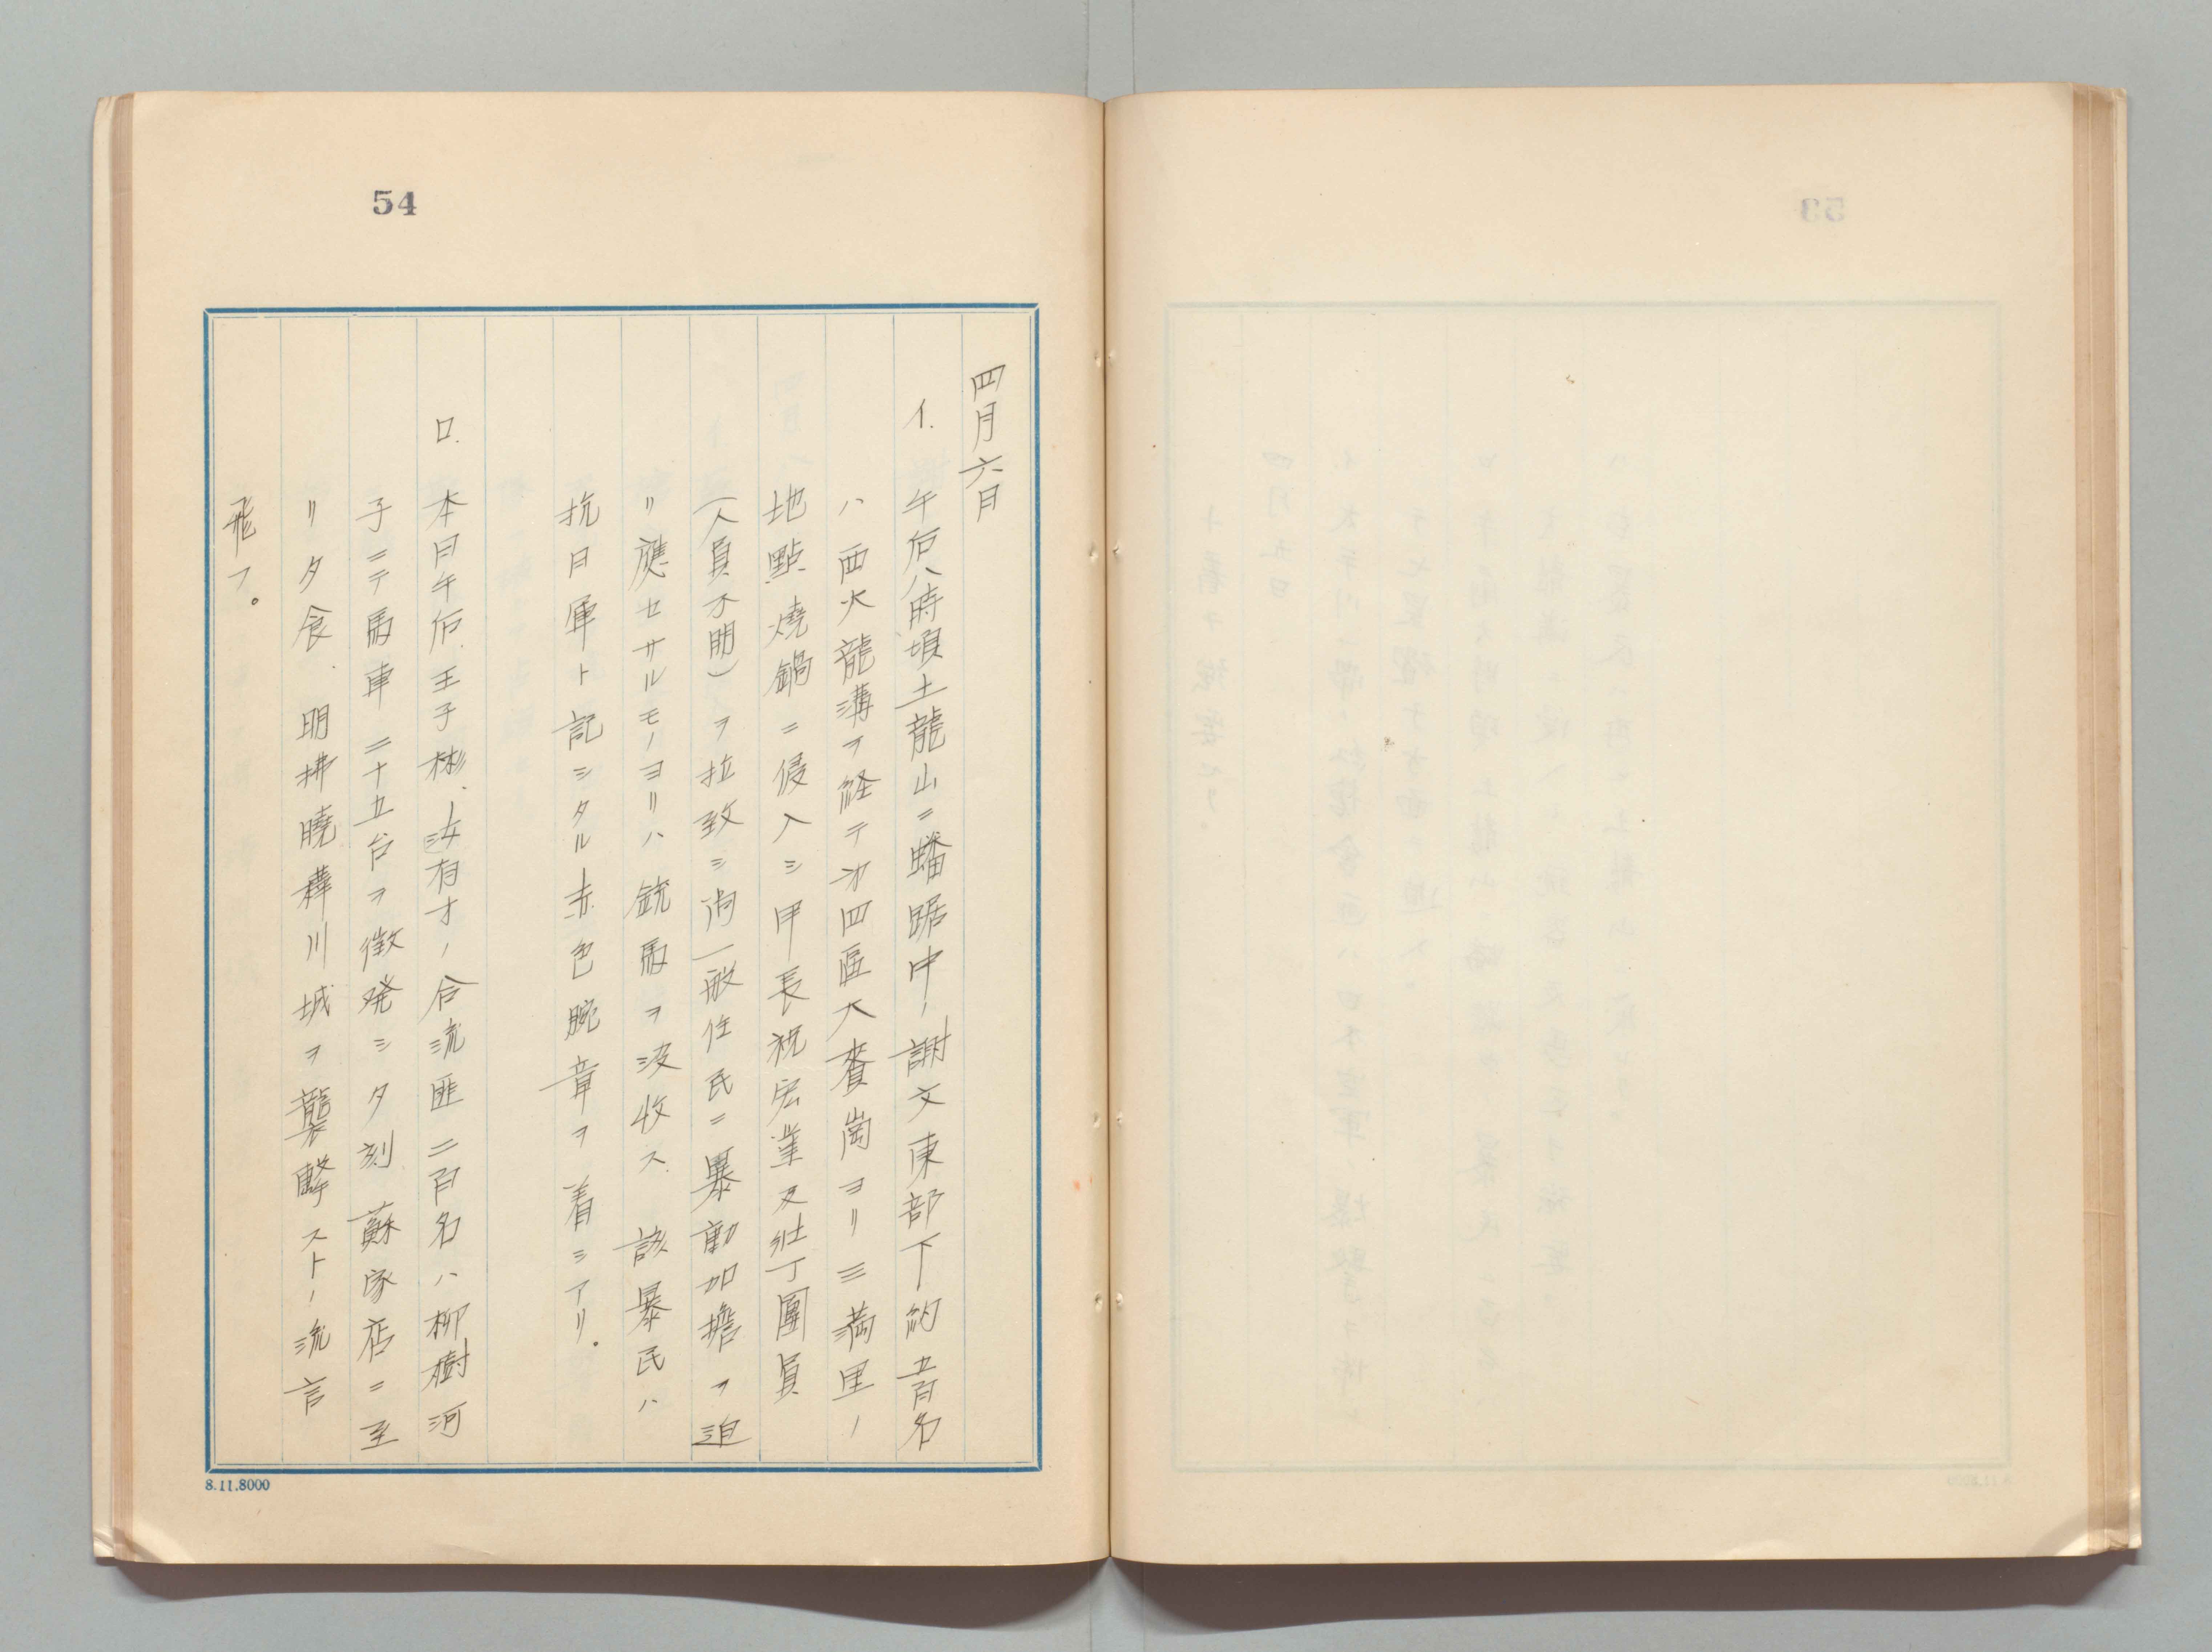 54
四月六日
イ．午后八時頃土龍山ニ蟠踞中ノ謝文東部下約五百名
ハ西火龍溝ヲ経テ第四區大賚崗ヨリ三満里ノ
地點燒鍋ニ侵入シ甲長祝宏業及壯丁團員
（人員不明）ヲ拉致シ尚一般住民ニ暴動加擔ヲ迫
リ應セサルモノヨリハ銃馬ヲ没收ス 該暴民ハ
抗日軍ト記シタル赤色腕章ヲ着シアリ。
ロ．本日午后、王子彬、汝有才ノ合流匪二百名ハ柳樹河
子ニテ馬車二十五台ヲ徴発シ夕刻蘇家店ニ至
リ夕食、明拂曉樺川城ヲ襲擊ストノ流言
飛フ。
8.11.8000